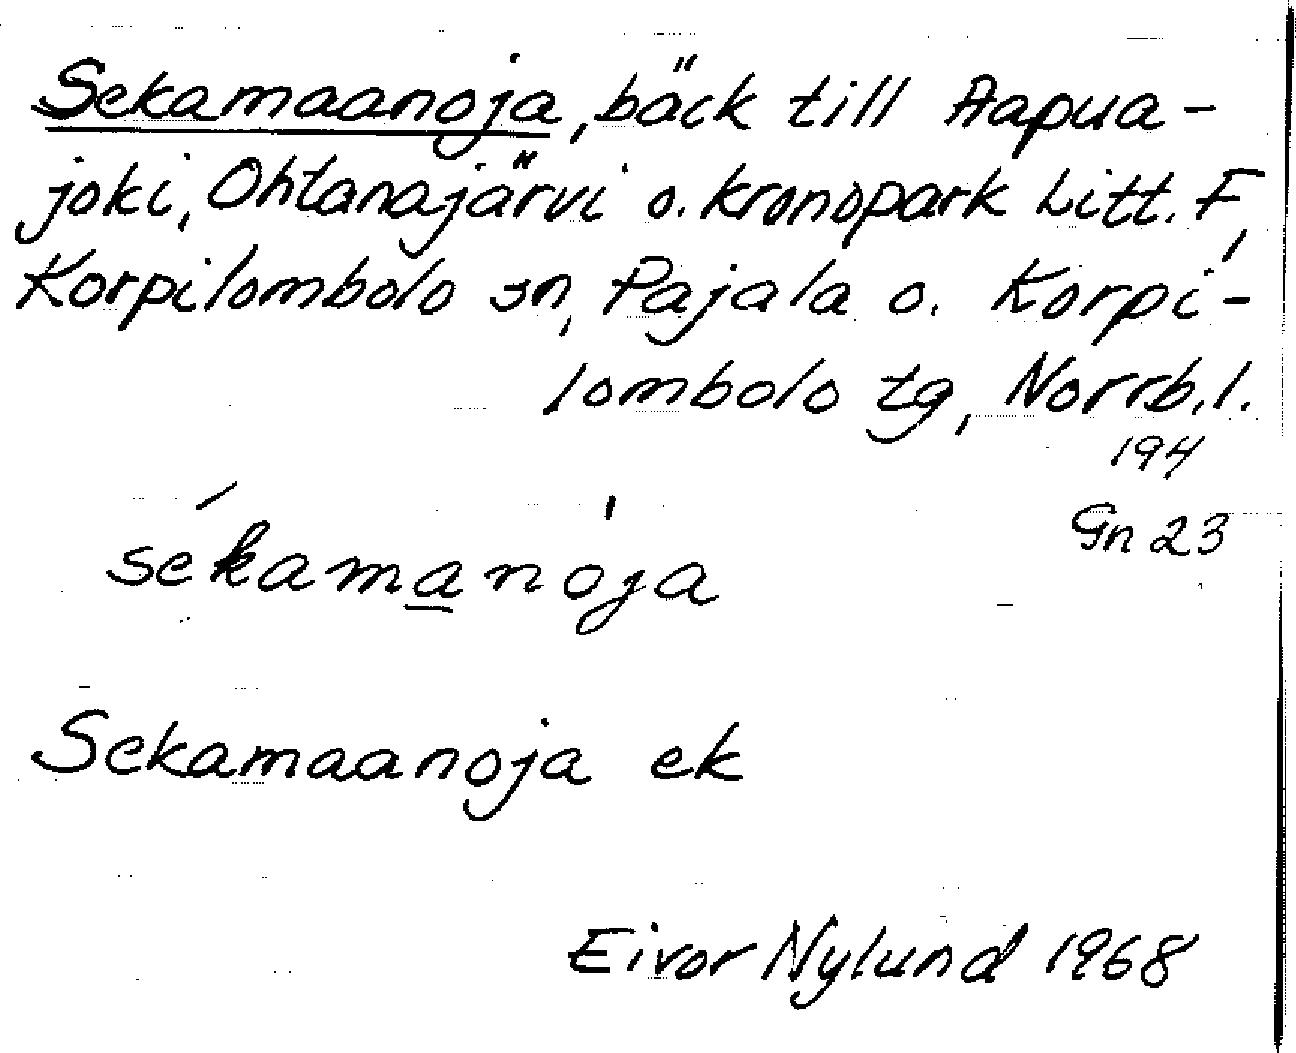 Sekamaanoja, bäck till Aapua-
joki, Ohtanajärvi o. kronopark Litt. F,
Korpilombolo sn, Pajala o. Korpi-
lombolo tg, Norrb. l.
194
Gn 23
sékamanòja
Sekamaanoja ek
Eivor Nylund 1968